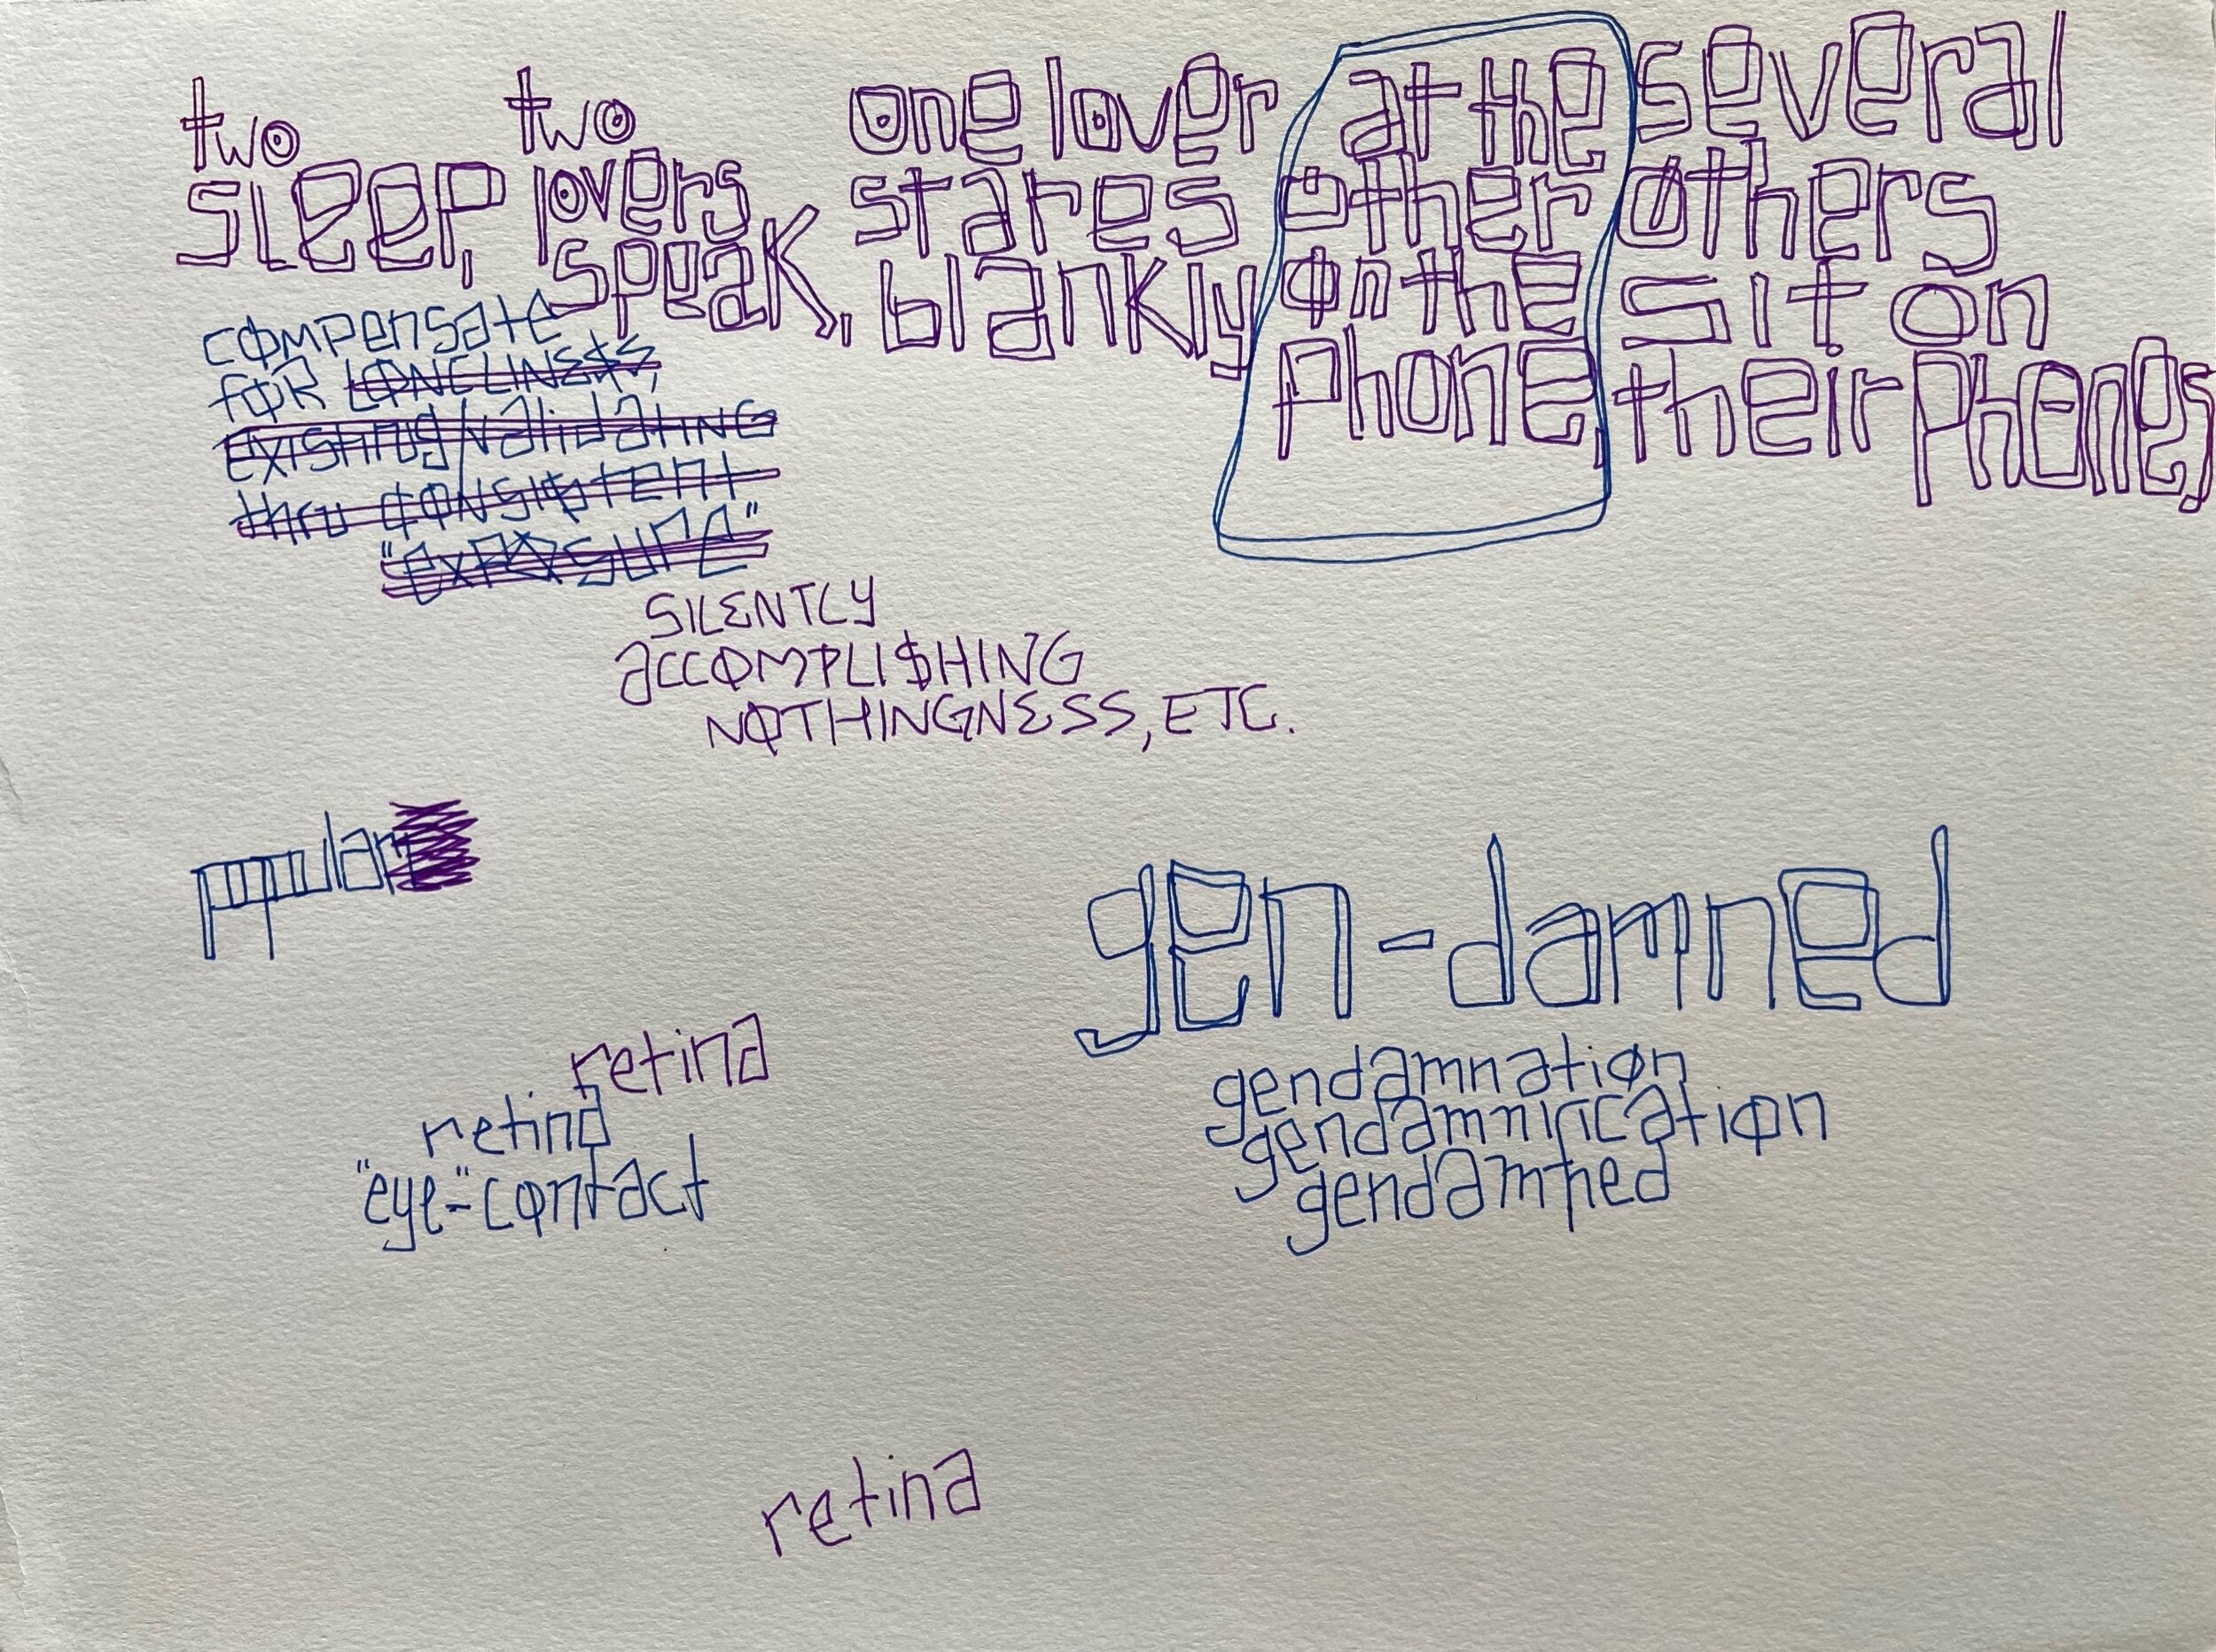 two
sleep,
two
lovers
speak,
one lover
stares
blankly
at the
other
on the
phone,
several
others
sit on
their phones,
compensate
for LONELINESS,
existing/validating
thru consistent
"exposure"
SILENTLY
accompli$hing
NOTHINGNESS, ETC.
popular
gen-damned
gendamnation
gendamnification
gendamned
retina
retina
"eye-"contact
retina